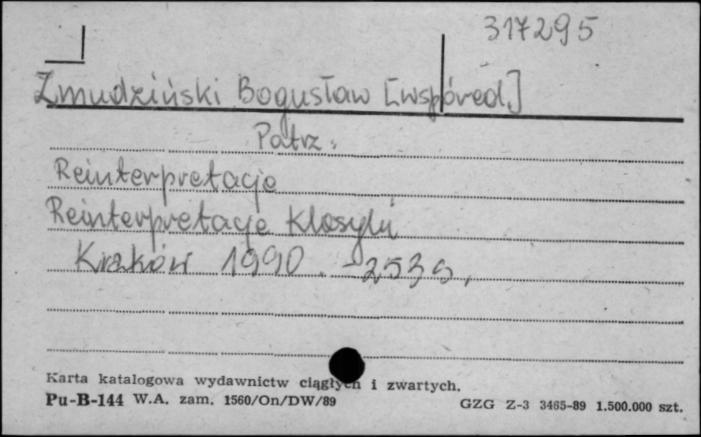 317295
Żmudziński Bogusław [współred]
Patrz:
Reinterpretacje
Reinterpretacje Klasyki
Kraków 1990. - 253 s.
Karta katalogowa wydawnictw ciągłych i zwartych.
Pu-B-144 W.A. zam. 1560/On/DW/89
GZG Z-3 3465-89 1.500.000 szt.